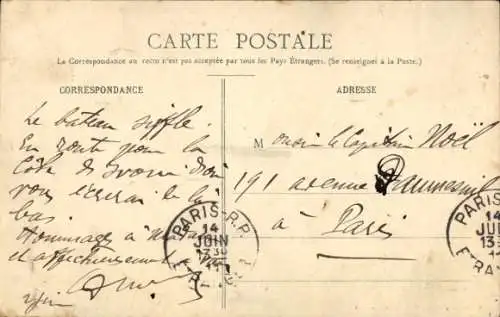 CARTE POSTALE
La Correspondance au recto n'est pas acceptée par tous les Pays Étrangers. (Se renseigner à la Poste.)
CORRESPONDANCE
Le bateau siffle.
En route pour la
Côte d'Ivoire d'où
vous écrirai de là
bas.
Hommages à
et affectueusement à
ADRESSE
M onsieur le Capitaine Noël
191 avenue Daumesnil
à Paris
PARIS R.P.
14
JUIN
1330
11
ETRANGER
PARIS
14
JUIN
133
ETRANGER